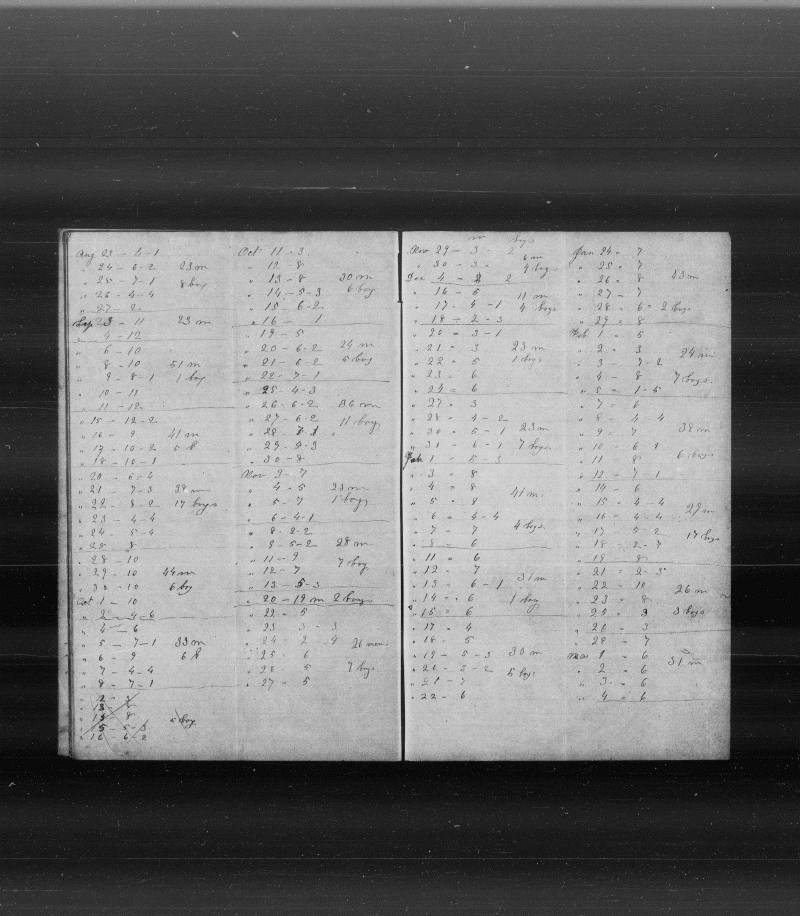 Aug 23 - 4 - 1
" 24 - 6 - 2 23 m
" 25 - 7 - 1 8 boy
" 26 - 4 - 4
" 27 - 2
Sep 3 - 11 23 m
" 4 - 12
" 6 - 10
" 8 - 10 51 m
" 9 - 8 - 1 1 boy
" 10 - 11
" 11 - 12
" 15 - 12 - 2
" 16 - 9 41 m
" 17 - 10 - 2 5 b
" 18 - 10 - 1
" 20 - 6 - 4
" 21 - 7 - 3 38 m
" 22 - 8 - 2 17 boys
" 23 - 4 - 4
" 24 - 5 - 4
" 25 - 8
" 28 - 10
" 29 - 10 44 m
" 30 - 10 6 boy
Oct 1 - 10
" 2 - 4 - 6
" 4 - 6
" 5 - 7 - 1 33 m
" 6 - 9 6 b
" 7 - 4 - 4
" 8 - 7 - 1
" 12 - 8
" 13 - 8
" 14 - 8 5 boy
" 15 - 5 - 3
" 16 - 6 - 2
Oct 11 - 3
" 12 8
" 13 - 8 30 m
" 14 - 5 - 3 6 boy
" 15 6 - 2
" 16 - 1
" 19 - 5
" 20 - 6 - 2 24 m
" 21 - 6 - 2 5 boy
" 22 - 7 - 1
" 25 - 4 - 3
" 26 - 6 - 2 36 m
" 27 - 6 - 2 11 boy
" 28 7 - 1
" 29 - 4 - 3
" 30 - 8
Nov 3 - 7
" 4 - 5 23 m
" 5 - 7 1 boy
" 6 - 4 - 1
" 8 - 2 - 2
" 9 - 5 - 2 28 m
" 11 - 9 7 boy
" 12 - 7
" 13 - 5 - 3
" 20 - 19 m 2 boys
" 22 = 5
" 23 3 - 3
" 24 - 2 - 4 26 men
" 25 - 6
" 26 - 5 7 boys
" 27 - 5
m boys
Nov 29 - 3 - 2
" 30 - 3 - 6 m
Dec 4 - 2 9 boys
" 16 - 5
" 17 - 4 - 1 11 m
" 18 - 2 - 3 4 boys
" 20 = 3 - 1
" 21 = 3 23 m
" 22 = 5 1 boys
" 23 = 6
" 24 = 6
" 27 = 3
" 28 - 4 - 2
" 30 - 5 - 1 23 m
" 31 - 6 - 1 7 boys
1 = 5 - 3
" 3 = 8
" 4 = 8 41 m
" 5 = 8
" 6 = 4 - 4
" 7 = 7 4 boys
" 8 = 6
" 11 = 6
" 12 = 7
" 13 = 6 - 1 31 m
" 14 = 6 1 boy
" 15 = 6
" 17 = 4
" 18 - 5
" 19 - 5 - 3 30 m
" 20 - 5 - 2 5 boys
" 21 - 5
" 22 - 6
Jan 24 = 7
" 25 = 7
" 26 = 8 43 m
" 27 - 7
" 28 = 6 = 2 boys
" 29 = 8
Feb 1 = 5
" 2 = 3 24 m
" 3 - 7 - 2
" 4 - 8 7 boys
" 5 = 1 - 5
" 7 = 6
" 8 - 4 4
" 9 = 7 38 m
" 10 - 6 - 1
" 11 = 8 6 boys
" 12 = 7 - 1
" 14 = 6
" 15 = 4 - 4
" 16 = 4 - 4 29 m
" 17 = 5 - 2
" 18 - 2 - 7 17 boys
" 19 8
" 21 = 2 - 3
" 22 = 10 26 m
" 23 = 8
" 25 = 3 3 boys
" 26 = 3
" 28 = 7
Mar 1 = 6
" 2 = 6 31 m
" 3 = 6
" 4 = 6